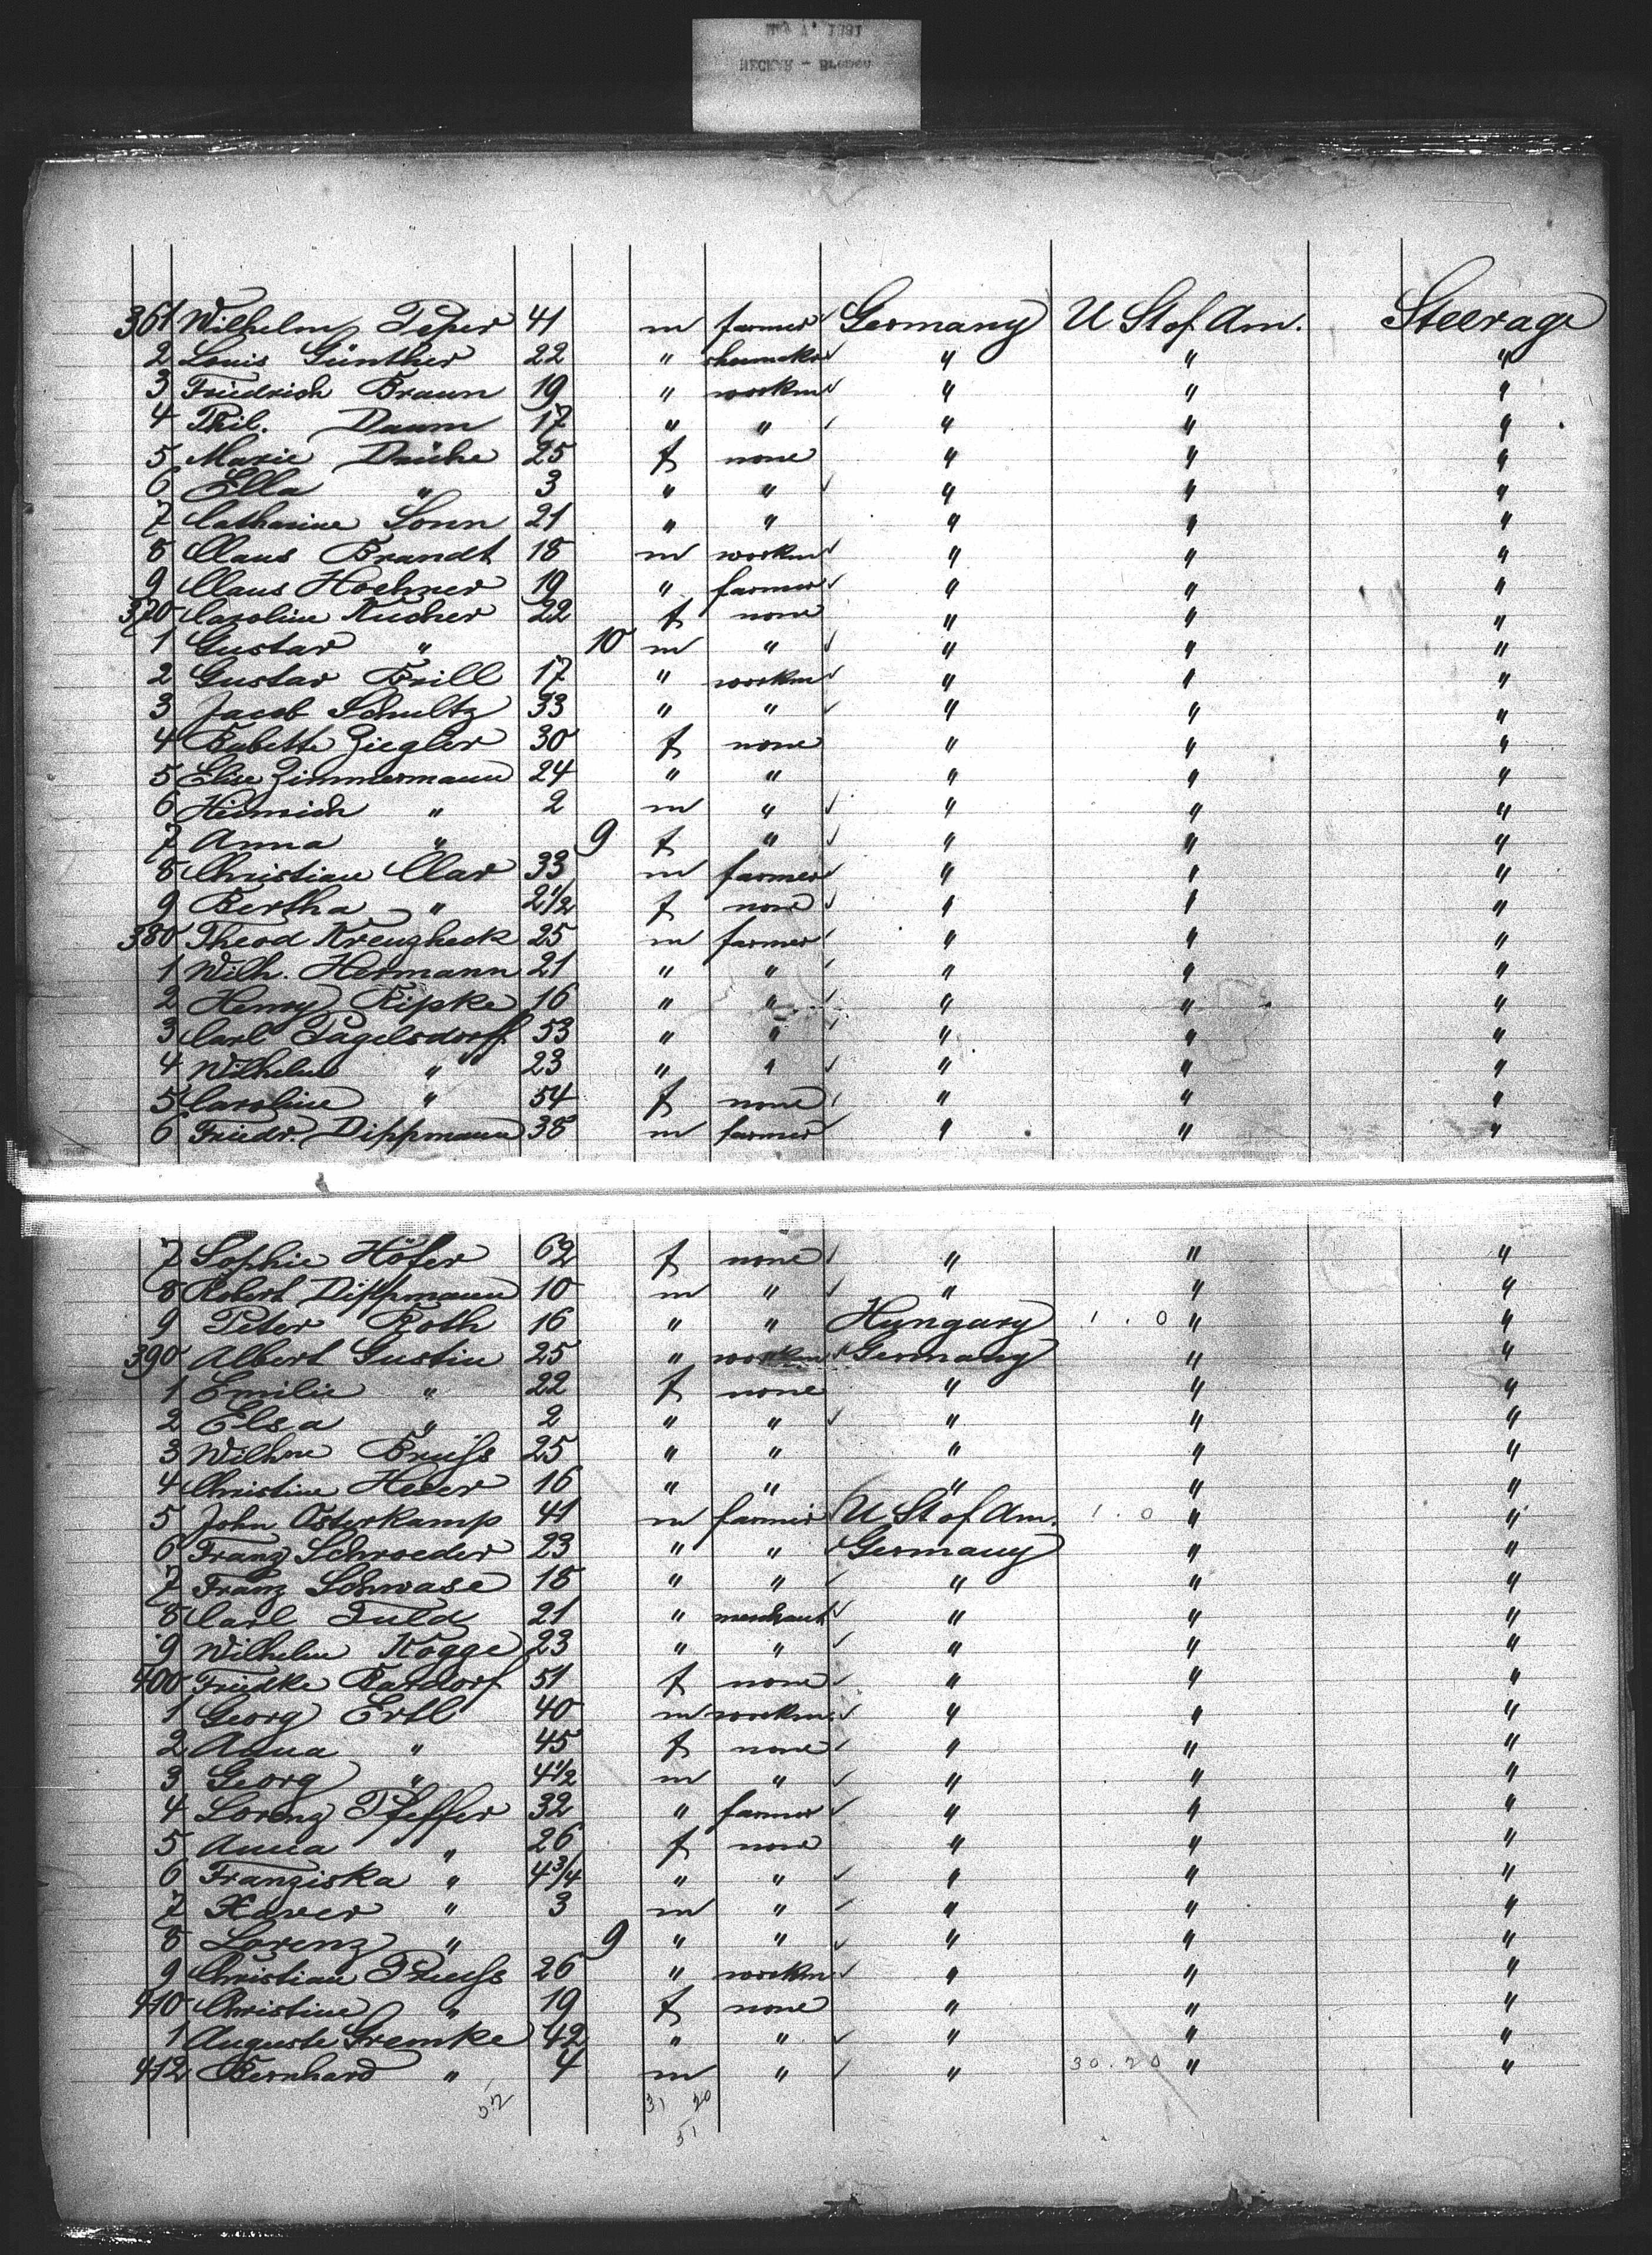 May 7, 1881
NECKAR - Bremen
361 Wilhelm Peper 41 m farmer Germany U St of Am. Steerage
2 Louis Günther 22 " shoemaker " " "
3 Friedrich Braun 19 " workm " " "
4 Phil. Daum 17 " " " " "
5 Marie 25 f none " " "
6 Ella " 3 " " " " "
7 Catharine Sonn 21 " " " " "
8 Claus Brandt 18 m workm " " "
9 Claus Hoehner 19 " farmer " " "
370 Caroline Kucher 22 f none " " "
1 Gustav " 10 m " " " "
2 Gustav Brill 17 " workm " " "
3 Jacob Schultz 33 " " " " "
4 Babette Ziegler 30 f none " " "
5 Elise Zimmermann 24 " " " " "
6 Heinrich " 2 m " " " "
7 Anna " 9 f " " " "
8 Christian Clar 33 m farmer " " "
9 Bertha " 2 1/2 f none " " "
380 Theod Kreuzheck 25 m farmer " " "
1 Wilh. Hermann 21 " " " " "
2 Henry Ripke 16 " " " " "
3 Carl Pagelsdorff 53 " " " " "
4 Wilhelm " 23 " " " " "
5 Caroline " 54 f none " " "
6 Friedr. Dippmann 38 m farmer " " "
7 Sophie Höfer 62 f none " " "
8 Robert Dippmann 10 m " " " "
9 Peter Roth 16 " " Hungary 1 . 0 " "
390 Albert Gustin 25 " workm Germany " "
1 Emilie " 22 f none " " "
2 Elsa " 2 " " " " "
3 Wilhme Bruss 25 " " " " "
4 Christine Heuer 16 " " " " "
5 John Osterkamp 41 m farmer U St of Am. 1 . 0 " "
6 Franz Schroeder 23 " " Germany " "
7 Franz Schwase 18 " " " " "
8 Carl Fuld 21 " merchant " " "
9 Wilhelm Kogge 23 " " " " "
400 Friedke Bardorf 51 f none " " "
1 Georg Ertl 40 m workm " " "
2 Anna " 45 f none " " "
3 Georg " 4 1/2 m " " " "
4 Lorenz Pfeffer 32 " farmer " " "
5 Anna " 26 f none " " "
6 Franziska " 4 3/4 " " " " "
7 Xaver " 3 m " " " "
8 Lorenz " 9 " " " " "
9 Christian Preuss 26 " workm " " "
410 Christine " 19 f none " " "
1 Auguste Gremke 42 " " " " "
412 Bernhard " 4 m " " 30.20 " "
52 31 20
51